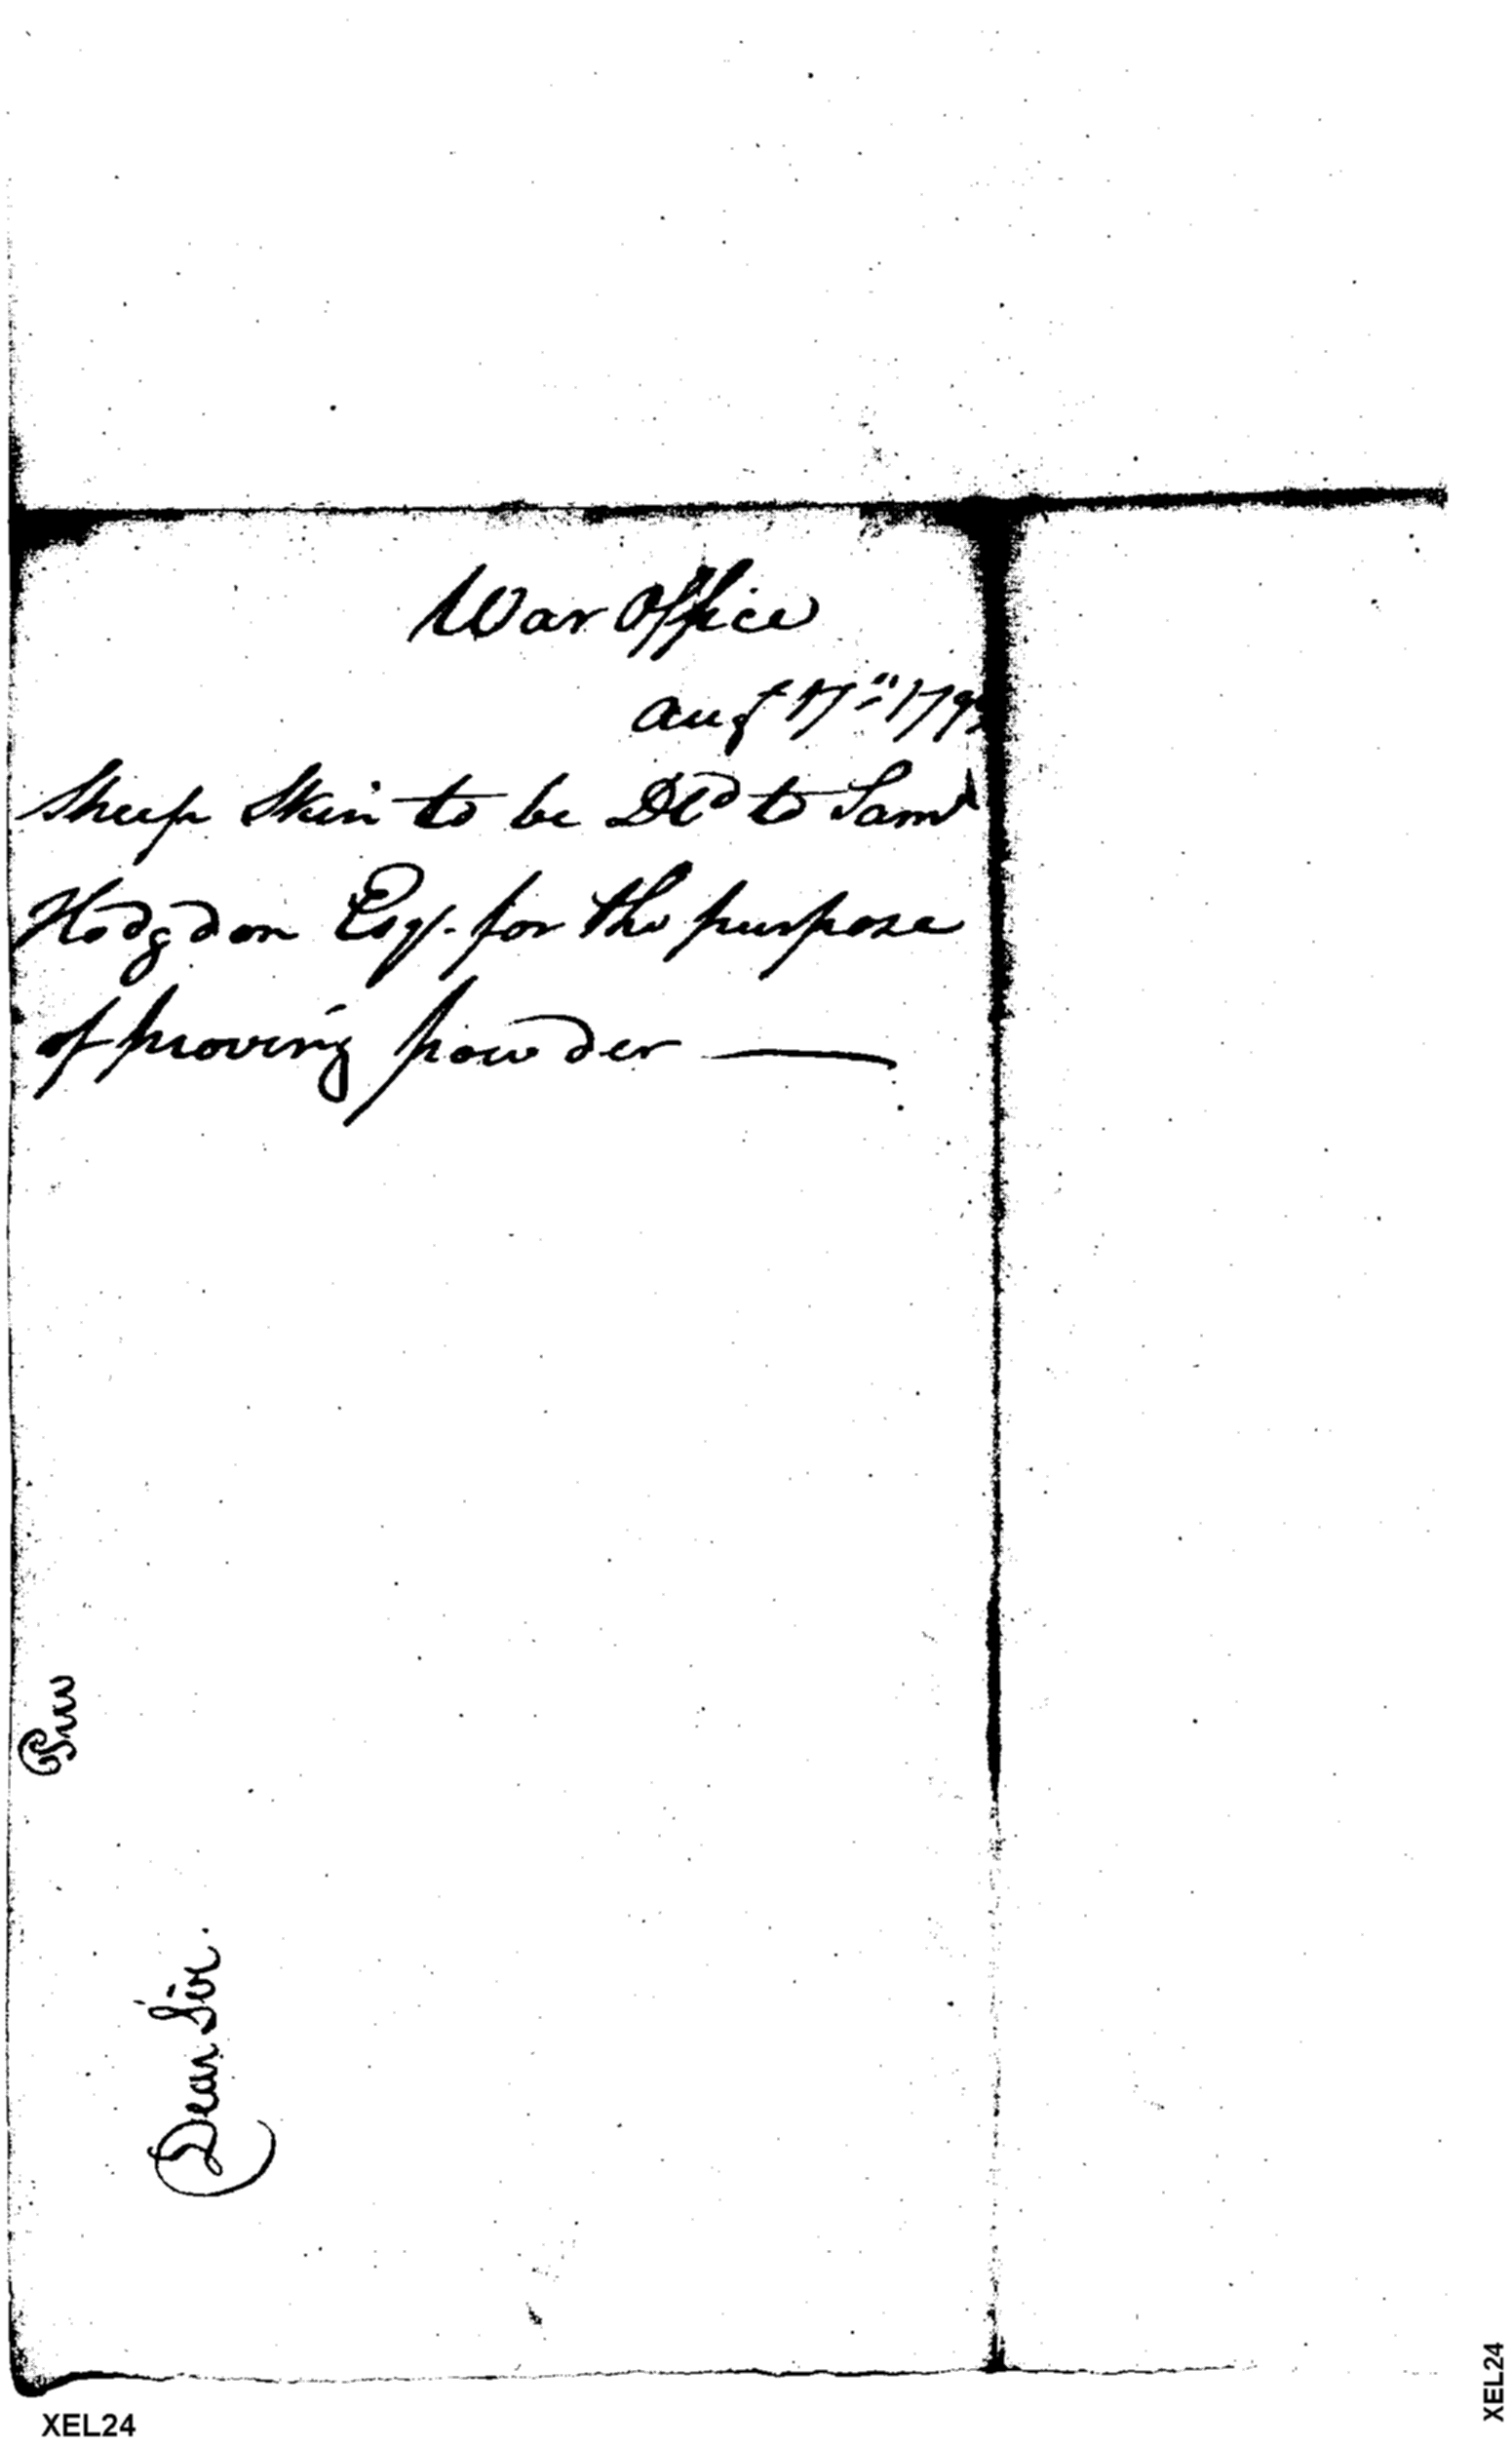 War Office
Aug 17th 179
Sheep Skin to be Dld to Saml
Hodgdon Esqr. for the purpose
of proving powder
Dear Sir.
XEL24
XEL24